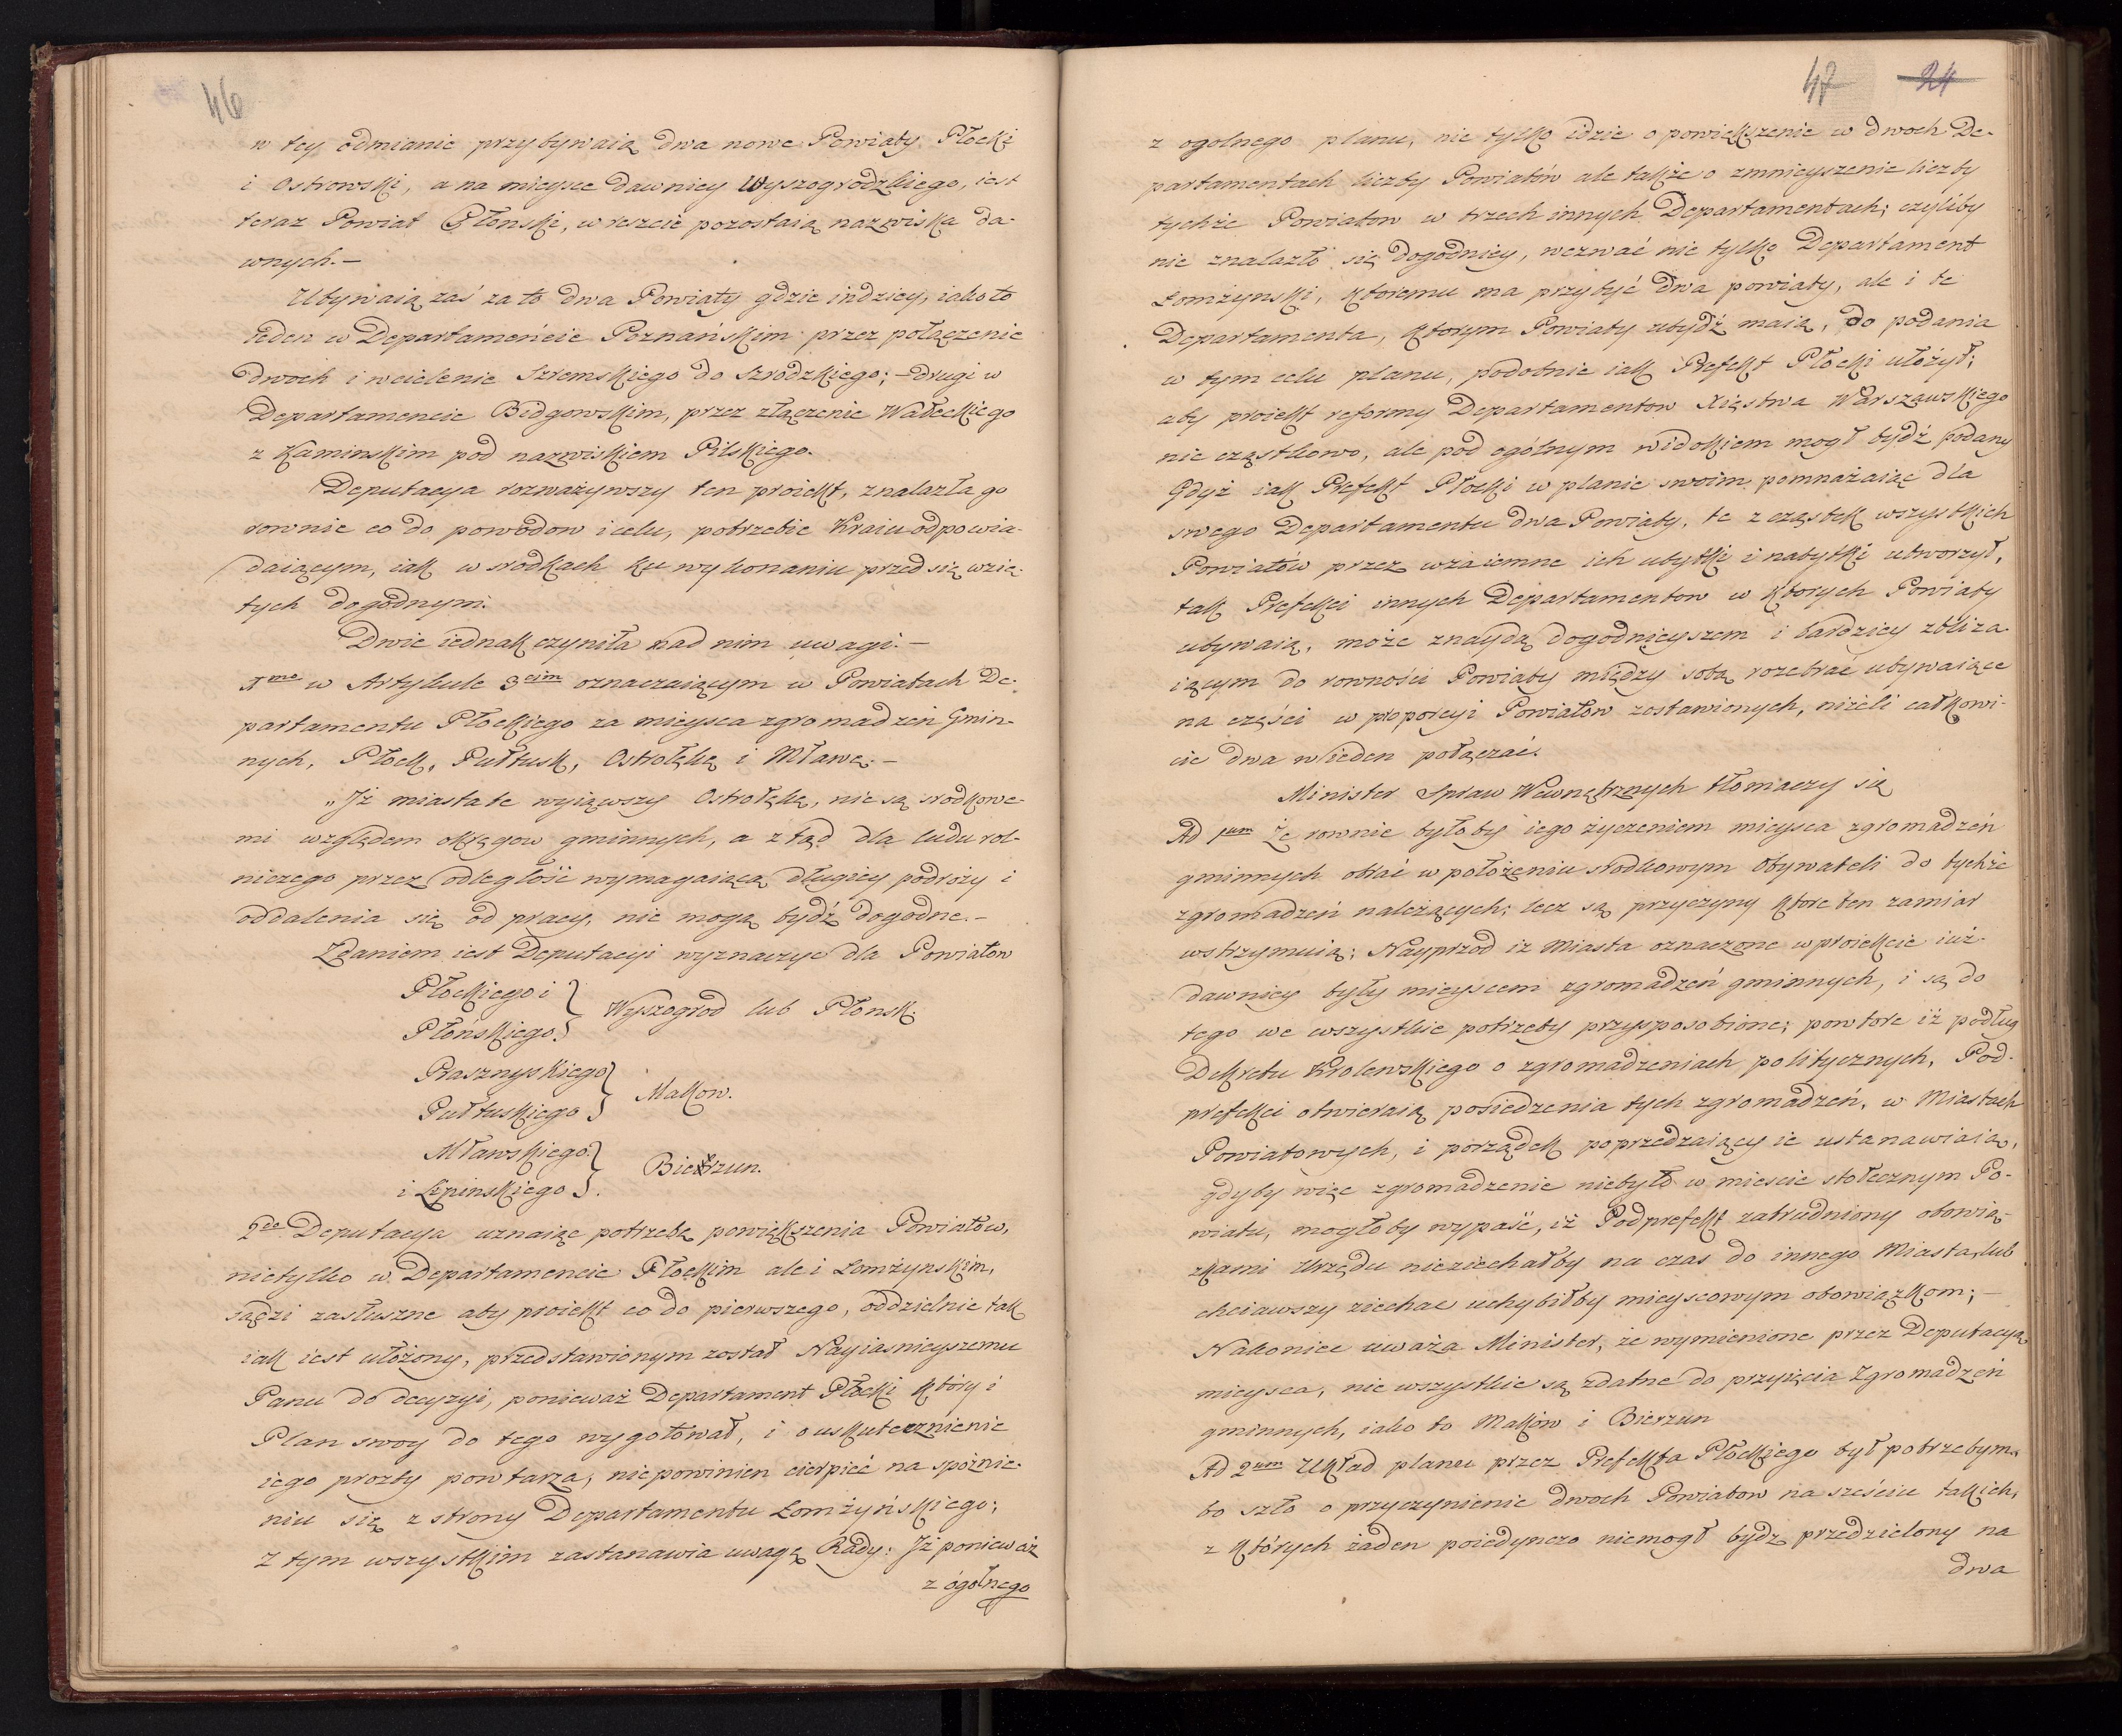 46
w tey odmianie przybywaią dwa nowe Powiaty Płocki
i Ostrowski, a na mieysce dawniey Wyszogrodzkiego, iest
teraz Powiat Płonski, w reszcie pozostaią nazwiska da-
wnych.—
Ubywaią zaś za to dwa Powiaty gdzie indziey, iako to
ieden w Departamencie Poznańskim przez połączenie
dwoch i wcielenie Szremskiego do Szrodzkiego; — drugi w
Departamencie Bidgowskim, przez złączenie Wałeckiego
z Kaminskim pod nazwiskiem Pilskiego.
Deputacya rozważywszy ten proiekt, znalazła go
rownie co do powodow i celu, potrzebie Kraiu odpowia-
daiącym, iak w srodkach ku wykonaniu przed się wzię-
tych dogodnym.
Dwie iednak czyniła nad nim uwagi.—
1mo w Artykule 3cim oznaczaiącym w Powiatach De-
partamentu Płockiego za mieysca zgromadzeń Gmin-
nych, Płock, Pułtusk, Ostrołękę i Mławę.—
„Iż miasta te wyiąwszy Ostrołękę, nie są srodkowe-
mi względem okręgow gminnych, a z tąd dla ludu rol-
niczego przez odległość wymagaiącą długiey podroży i
oddalenia się od pracy, nie mogą bydź dogodne.—
Zdaniem iest Deputacyi wyznaczyc dla Powiatow
Płockiego i
Płońskiego } Wyszogrod lub Płonsk.
Prasznyskiego
Pułtuskiego } Makow.
Mławskiego
i Lipinskiego } Bierzun.
2do Deputacya uznaiąc potrzebę powiększenia Powiatów,
nietylko w Departamencie Płockim ale i Łomżynskim,
sądzi za słuszne aby proiekt co do pierwszego, oddzielnie tak
iak iest ułożony, przedstawionym został Nayiasnieyszemu
Panu do decyzyi, ponieważ Departament Płocki który i
Plan swoy do tego wygotował, i o uskutecznienie
iego prozby powtarza, nie powinien cierpieć na spóźnie-
niu się z strony Departamentu Łomżyńskiego;
Z tym wszystkim zastanawia uwagę Rady: Iż ponieważ
z ogólnego
47 24
z ogolnego planu, nie tylko idzie o powiększenie w dwoch De-
partamentach liczby Powiatów ale także o zmnieyszenie liczby
tychże Powiatow w trzech innych Departamentach; czyliby
nie znalazło się dogodniey, wezwać nie tylko Departament
Łomżynski, ktoremu ma przybyć dwa powiaty, ale i te
Departamenta, ktorym Powiaty ubydź maią, do podania
w tym celu planu, podobnie iak Prefekt Płocki ułożył;
aby proiekt reformy Departamentow Xięstwa Warszawskiego
nie cząstkowo, ale pod ogólnym widokiem mogł bydź podany
Gdyż iak Prefekt Płocki w planie swoim pomnażaiąc dla
swego Departamentu dwa Powiaty, te z cząstek wszystkich
Powiatów przez wzaiemne ich ubytki i nabytki utworzył,
tak Prefekci innych Departamentow w ktorych Powiaty
ubywaią, może znaydą dogodnieyszem i bardziey zbliża-
iącym do rowności Powiaty między sobą rozebrać ubywaiące
na części w proporcyi Powiatow zostawionych, niżeli całkowi-
cie dwa w ieden połączać.
Minister Spraw Wewnętrznych tłomaczy się
Ad 1um Że rownie byłoby iego życzeniem mieysca zgromadzeń
gminnych obrać w położeniu srodkowym Obywateli do tychże
zgromadzeń należących; lecz są przyczyny ktore ten zamiar
wstrzymuią: Nayprzod iz Miasta oznaczone w proiekcie iuż
dawniey były mieyscem zgromadzeń gminnych, i są do
tego we wszystkie potrzeby przysposobione; powtore iż podług
Dekretu Krolewskiego o zgromadzeniach politycznych, Pod-
prefekci otwieraią posiedzenia tych zgromadzeń, w Miastach
Powiatowych, i porządek poprzedzaiący ie ustanawiaią,
gdyby więc zgromadzenie niebyło w miescie stołecznym Po-
wiatu, mogłoby wypaść, iż Podprefekt zatrudniony obowią-
zkami Urzędu nieziechałby na czas do innego Miasta, lub
chciawszy ziechac uchybiłby mieyscowym obowiązkom; —
Nakoniec uważa Minister, że wymienione przez Deputacyą
mieysca, nie wszystkie są zdatne do przyięcia Zgromadzeń
gminnych, iako to Maków i Bierzun
Ad 2um Układ planu przez Prefekta Płockiego był potrzebym
bo szło o przyczynienie dwoch Powiatow na sześciu takich,
z których żaden poiedynczo niemogł bydz przedzielony na
dwa